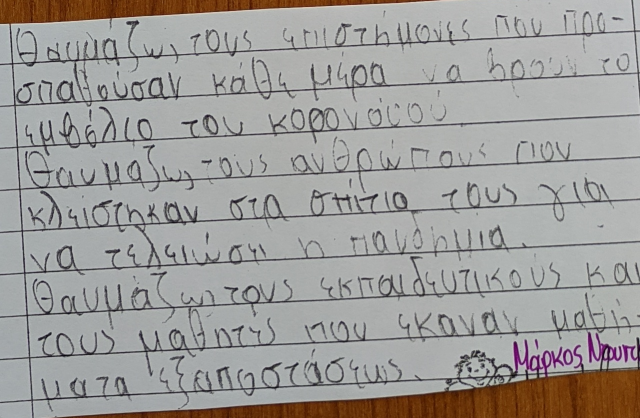 Θαυμάζω, τους επιστήμονες που προ-
σπαθούσαν κάθε μέρα να βρουν το
εμβόλιο του κορονοϊού.
Θαυμάζω, τους ανθρώπους που
κλειστηκαν στα σπίτια τους για
να τελειώσει η πανδημια.
Θαυμάζω, τους εκπαιδευτικους και
τους μαθητες που εκαναν μαθή-
ματα εξαποστάσεως.
Μάρκος